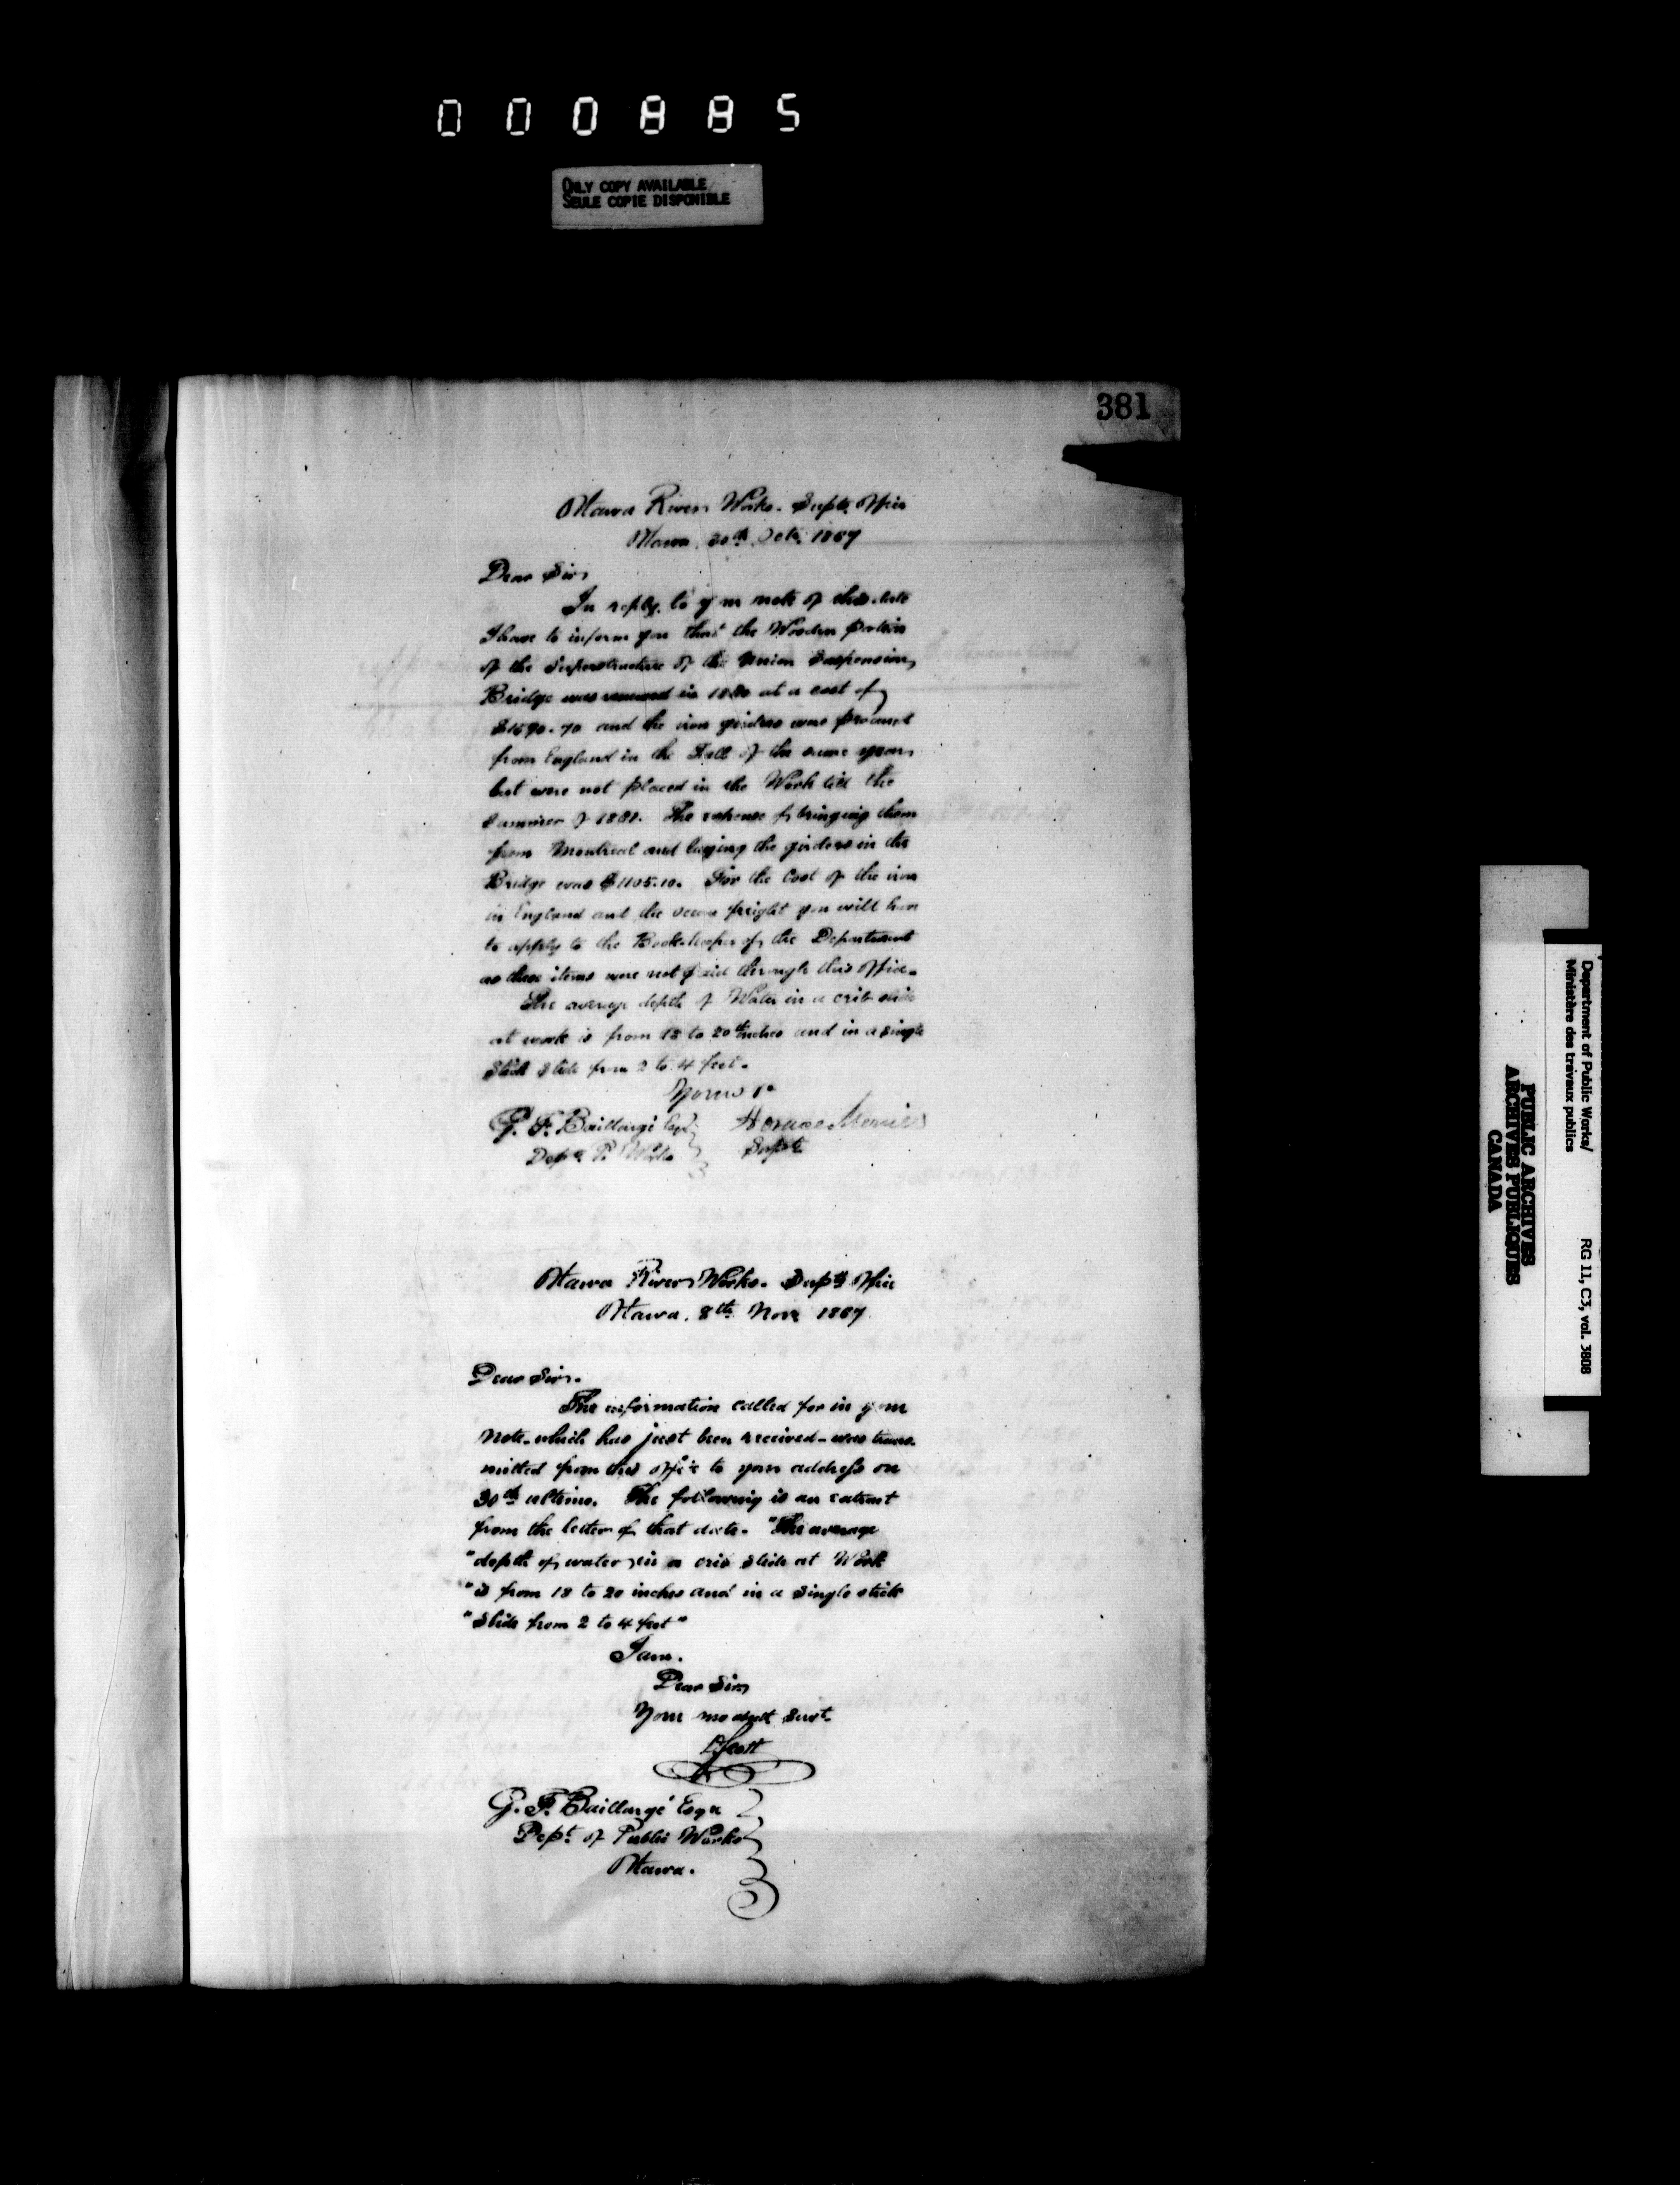 000885
ONLY COPY AVAILABLE
SEULE COPIE DISPONIBLE
381
Ottawa River Works. Supts. Office
Ottawa, 30th Octr. 1867
Dear Sir,
In reply to your note of this date
I have to inform you that the Wooden portion
of the Superstructure of the Union Suspension
Bridge was renewed in at a cost of
and the iron girders were procured
from England in the Fall of the same year,
but were not placed in the Work till the
Summer of The expense of bringing them
from Montreal and laying the girders in the
Bridge was $1105.10. For the Cost of the iron
in England and the ocean freight you will have
to apply to the Book-keeper of the Department
as these items were not paid through this office.
The average depth of Water in a crib slide
at work is from 18 to 20 inches and in a single
Stick Slide from 2 to 4 feet.
Yours &c
G. F. Baillairgé Esqr Horace Merrill
Dept. P. Works Supt.
Ottawa River Works. Supts Office
Ottawa, 8th Novr 1867
Dear Sir.
The information called for in your
note. which has just been received - was trans.
mitted from this office to your address on
30th ultimo. The following is an extract
from the letter of that date. "The average
"depth of water in a crib slide at Work
"is from 18 to 20 inches and in a single stick
"Slide from 2 to 4 feet"
I am.
Dear Sir,
Your mo obedt Servt.
Scott
G. F. Baillairgé Esqr
Dept. of Public Works
Ottawa.
Department of Public Works/
Ministère des travaux publics
RG 11, C3, vol. 3808
PUBLIC ARCHIVES
ARCHIVES PUBLIQUES
CANADA